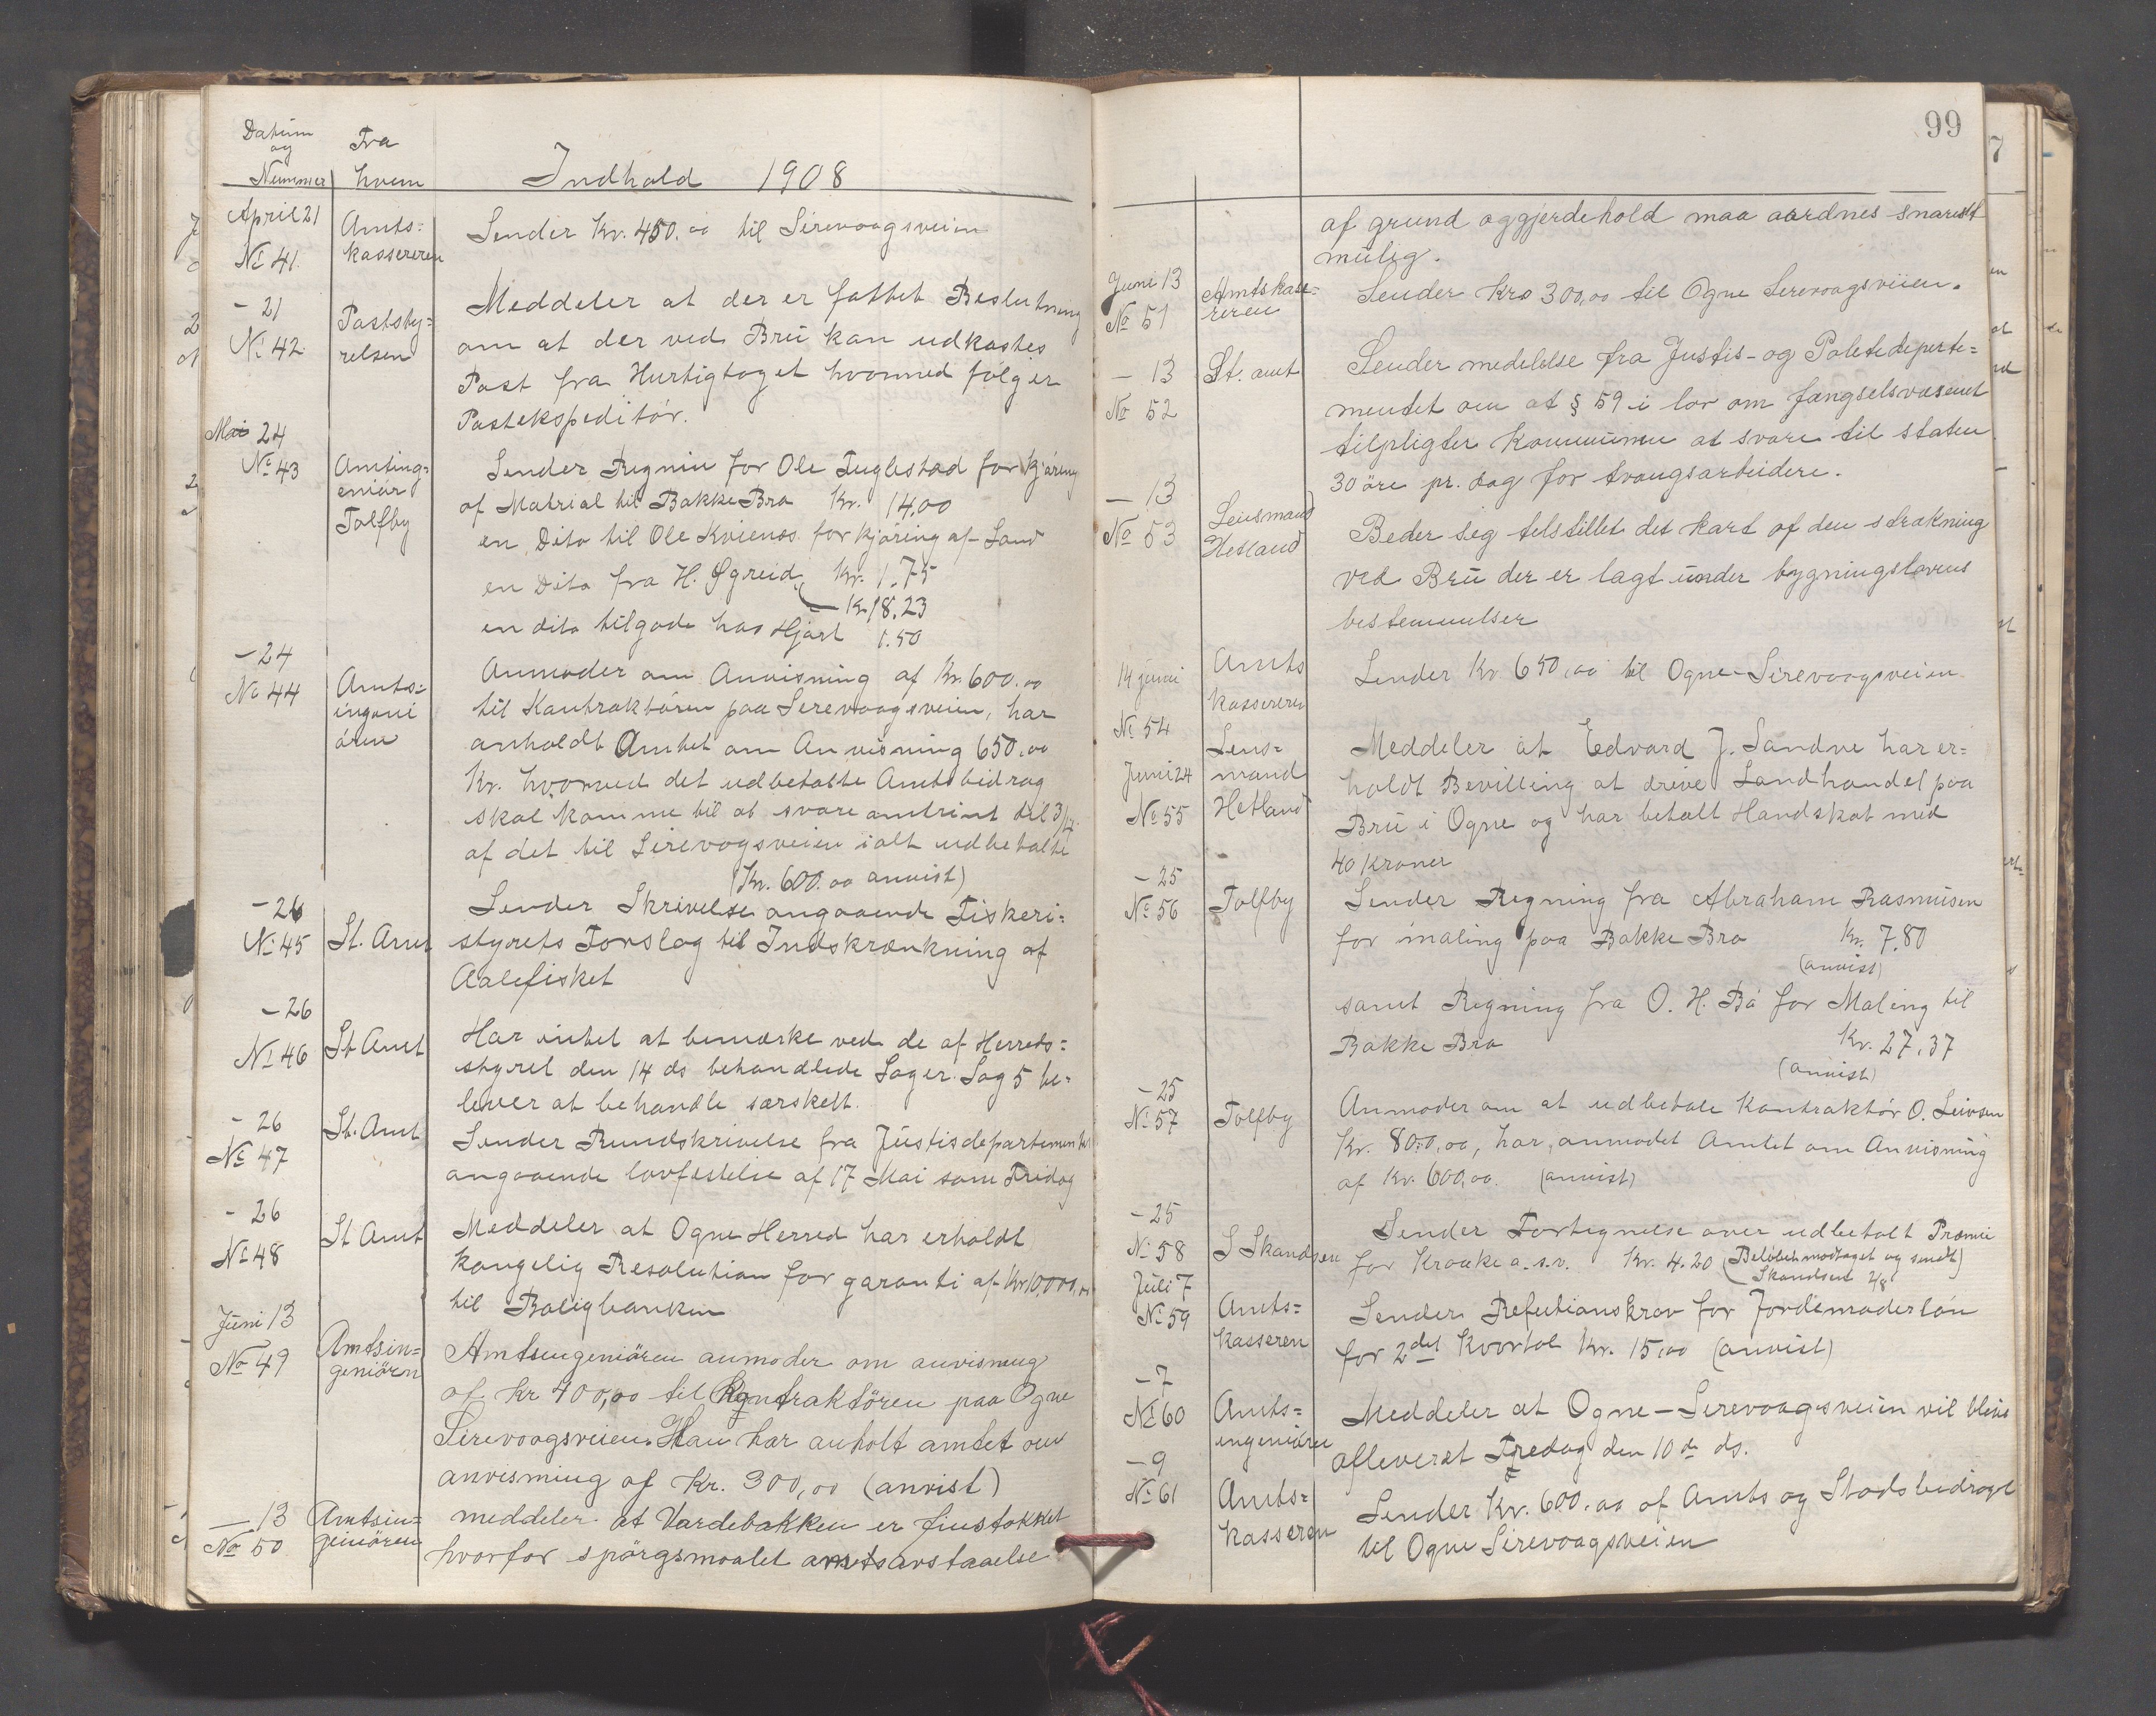 Datum og Nummer
Fra hvem
Indhold 1908
April 21
No 41
Amts=
kassereren
Sender Kr. 450.00 til Sirevaagsveien
- 21
No 42
Poststy=
relsen
Meddeler at der er fattet Beslutning
om at der ved Brú kan udkastes
Post fra Hurtigtoget hvormed følger
Postekspeditør.
Mai 24
No 43
Amting=
eniør
Tolfby
Sender Regnin for Ole Fuglestad for kjøring
af Matrial til Bakke Bro Kr. 14.00
en Dito til Ole Kvienes for kjøring af Sand
Kr. 1.75
en Dito fra H. Øgreid
Kr 18.23
en dito tilgode hos Hjort 1.50
- 24
No 44
Amts=
ingeni
øren
Anmoder om Anvisning af Kr. 600.00
til Kantraktøren paa Sirevaagsveien, har
anholdt Amtet om Anvisning 650.00
Kr. hvormed det udbetalte Amtsbidrag
skal komme til at svare omtrint til 3/4
af det til Sirevogsveien ialt udbetalte
(Kr. 600.00 anvist)
- 26
No 45
St. Amt
Sender Skrivelse angaaende Fiskeri=
styrets Forslag til Indskrænkning af
Aalefisket
- 26
No 46
St Amt
Har intet at bemærke ved de af Herreds=
styret den 14 ds behandlede Sager. Sag 5 be=
lever at behandle særskelt.
- 26
No 47
St. Amt
Sender Rundskrivelse fra Jústisdepartementet
angaaende lovfestelse af 17 Mai som Fridag
- 26
No 48
St Amt
Meddeler at Ogne Herred har erholdt
kongelig Resolution for garanti af Kr 10,000,00
til Boligbanken
Júni 13
No 49
Amtsin=
geniörn
Amtsingeniören anmoder om anvisning
af kr 400,00 til Kontraktören paa Ogne
Sirevoagsveien. Han har anholt amtet om
anvisning af Kr. 300,00 (anvist)
- 13
No 50
Amtsin=
geniören
meddeler at Vardebakken er finstokket
hvorfor spörgsmaalet amtsavstaaelse
99
af grund og gjerdehold maa aardnes snarest
múlig.
Juni 13
No 51
Amtskase=
reren
Sender Kro 300,00 til Ogne Sirevoagsveien.
- 13
No 52
St. amt
Sender medelelse fra Justis- og Politideperte=
mentet om at § 59 i lov om fængselsvæsenet
tilpligter Kommunen at svare til staten
30 öre pr. dag for tvangsarbeidere.
- 13
No 53
Lensmand
Hetland
Beder sig telstillet det kart af den strækning
ved Brú der er lagt únder bygningslovens
bestemmelser
14 juni
No 54
Amts
kasseren
Sender Kr 650,00 til Ogne-Sirevaagsveien
Juni 24
No 55
Lens=
mand
Hetland
Meddeler at Edvard J. Sandve har er=
holdt Bevilling at drive Landhandel paa
Brú i Ogne og har betalt Handskat med
40 kroner
- 25
No 56
Tolfby
Sender Regning fra Abraham Rasmúsen
for maling paa Bakke Bro Kr. 7.80
(anvist)
samt Regning fra O. H. Bö for Maling til
Bakke Bro Kr. 27.37
(anvist)
- 25
No 57
Tolfby
Anmoder om at udbetale Kontraktør O. Sivsen
Kr. 800,00, har anmodet Amtet om Anvisning
af Kr. 600,00. (anvist)
- 25
No 58
S Skandsen
Sender Fortegnelse over udbetalt Præmie
for Kraake o.s.v. Kr. 4.20 (Beløbet modtaget og sendt
Skandsen 2/8)
Júli 7
No 59
Amts=
kasseren
Sender Refutionskrav for Jordemoderløn
for 2det Kvartal Kr. 15,00 (anvist)
- 7
No 60
Amts=
ingeniøren
Meddeler at Ogne-Sirevaagsveien vil blive
afleveret Fredag den 10de ds.
- 9
No 61
Amts=
kasseren
Sender Kr. 600.00 af Amts og Stadsbidraget
til Ogne Sirevaagsveien